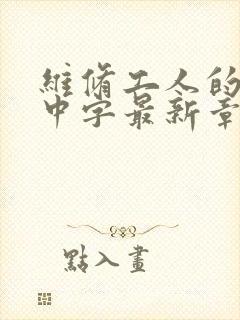 維修工人的
中字最新章
點入畫